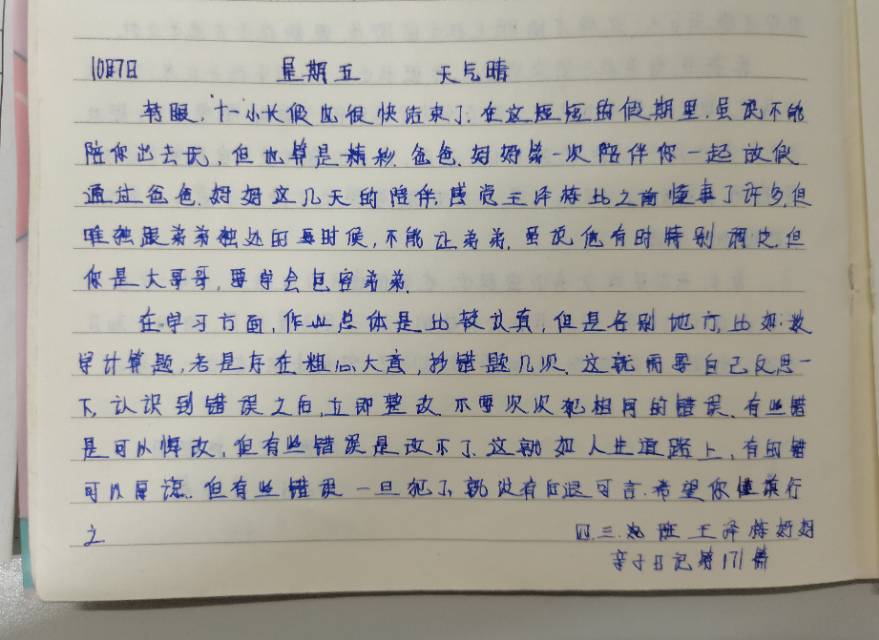 10月7日 星期五 天气晴
转眼,十一小长假也很快结束了.在这短短的假期里.虽说不能
陪你出去玩,但也算是精彩.爸爸.妈妈第一次陪伴你一起放假
通过爸爸.妈妈这几天的陪伴.感觉王泽栋比之前懂事了许多.但
唯独跟弟弟独处的每时候,不能让弟弟.虽说他有时特别调皮.但
你是大哥哥,要学会包容弟弟.
在学习方面,作业总体是比较认真,但是各别地方,比如:数
学计算题,老是存在粗心大意,抄错题几次.这就需要自己反思一
下,认识到错误之后,立即整改.不要次次犯相同的错误.有些错
是可以悔改,但有些错误是改不了.这就如人生道路上,有的错
可以原谅.但有些错误一旦犯了就没有后退可言.希望你慎行
之
四.三班王泽栋妈妈
亲子日记第171篇